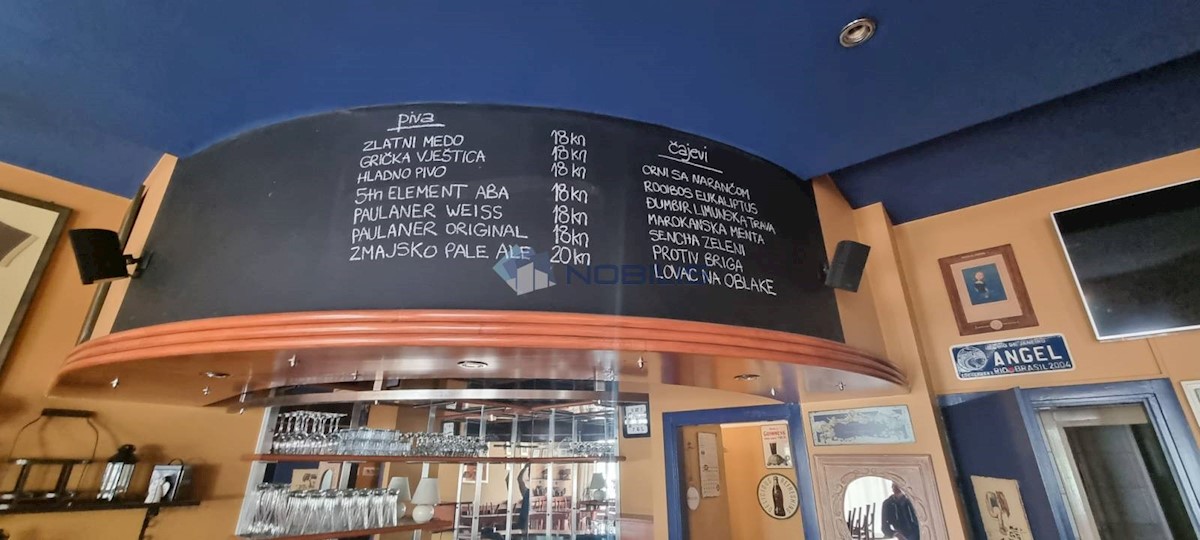 piva
ZLATNI MEDO 18kn
GRIČKA VJEŠTICA 18kn
HLADNO PIVO 18kn
5th ELEMENT ABA 18kn
PAULANER WEISS 18kn
PAULANER ORIGINAL 18kn
ZMAJSKO PALE ALE 20kn
čajevi
CRNI SA NARANČOM
ROOIBOS EUKALIPTUS
ĐUMBIR LIMUNSKA TRAVA
MAROKANSKA MENTA
SENCHA ZELENI
PROTIV BRIGA
LOVAC NA OBLAKE
ANGEL
RIO BRASIL 2004
GUINNESS